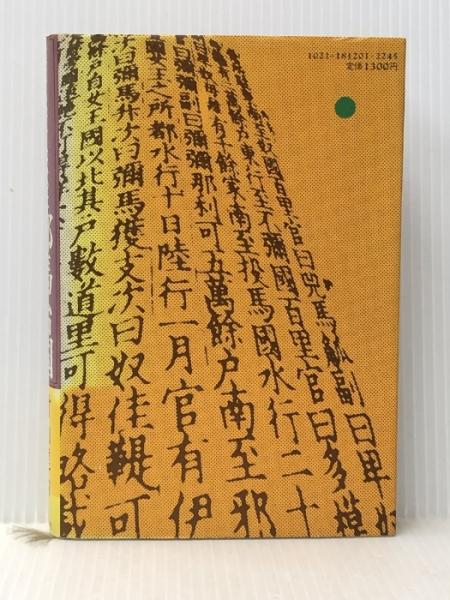 1021-181201-2245
定価1300円
奴國百里官曰兕馬觚副曰卑奴
東行至不彌國百里官曰多模
有千餘家南至投馬國水行二十
副曰彌彌那利可五萬餘戶南至邪
女王之所都水行十日陸行一月官有伊
曰彌馬升次曰彌馬獲支次曰奴佳鞮可
自女王國以北其戶數道里可得略載